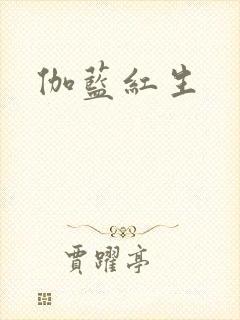 伽藍紅生
賈躍亭